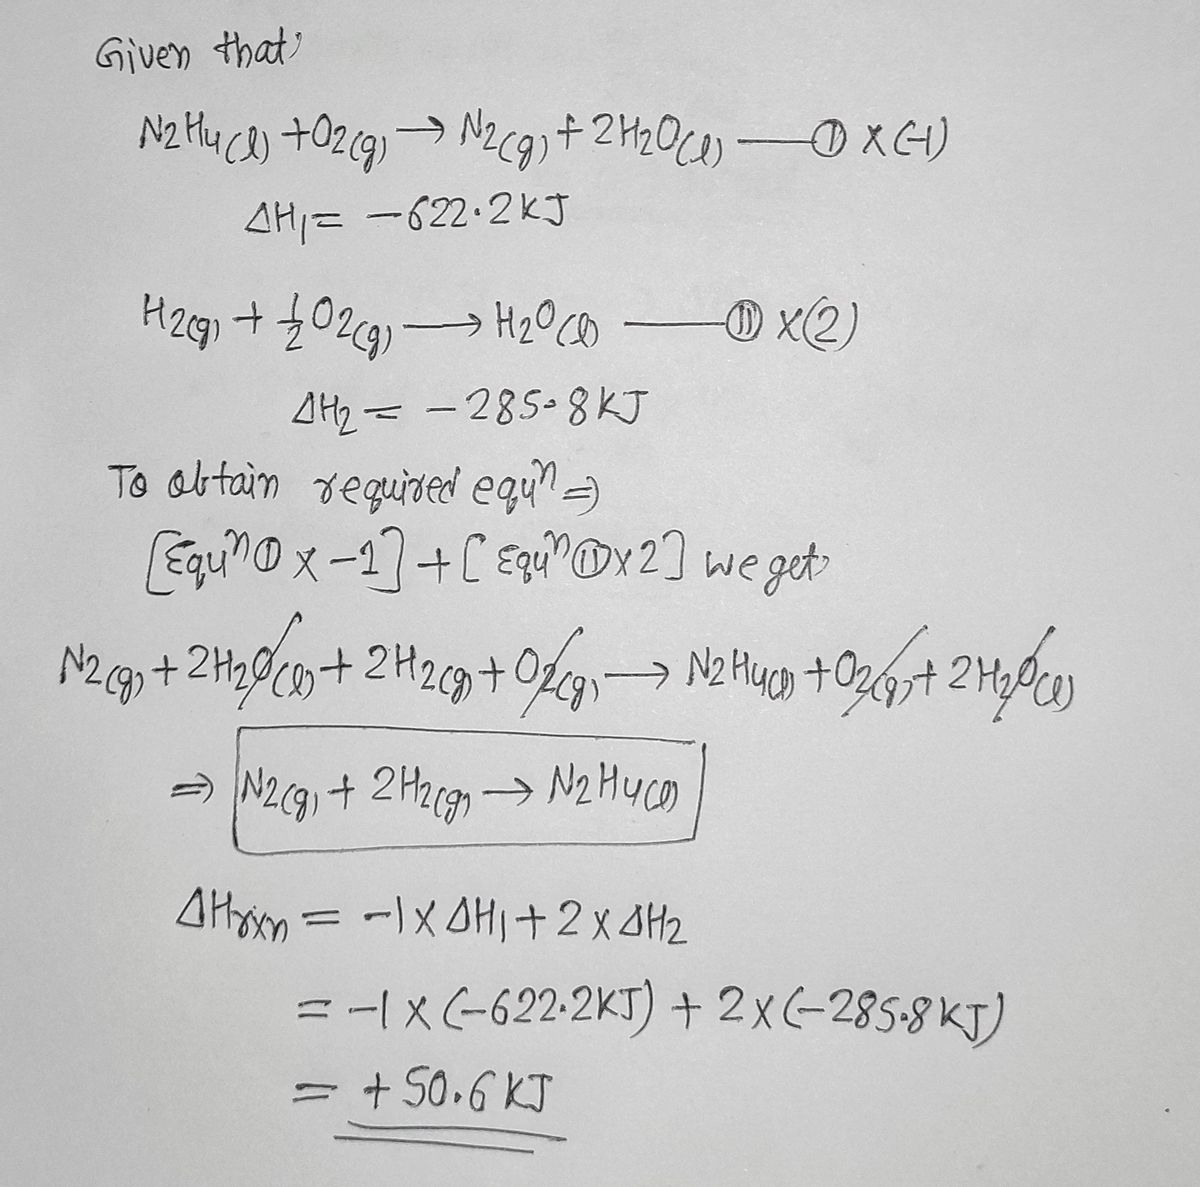 Given that,
N2H4(l) + O2(g) → N2(g) + 2H2O(l) — Ⓘ × (-1)
ΔH1 = -622.2 KJ
H2(g) + 1/2 O2(g) → H2O(l) — Ⓘⓘ × (2)
ΔH2 = -285.8 KJ
To obtain required equⁿ ⇒
[Equⁿ Ⓘ × -1] + [Equⁿ Ⓘⓘ × 2] we get,
N2(g) + 2H2O(l) + 2H2(g) + O2(g) → N2H4(l) + O2(g) + 2H2O(l)
⇒ N2(g) + 2H2(g) → N2H4(l)
ΔHrxn = -1 × ΔH1 + 2 × ΔH2
= -1 × (-622.2KJ) + 2 × (-285.8 KJ)
= +50.6 KJ